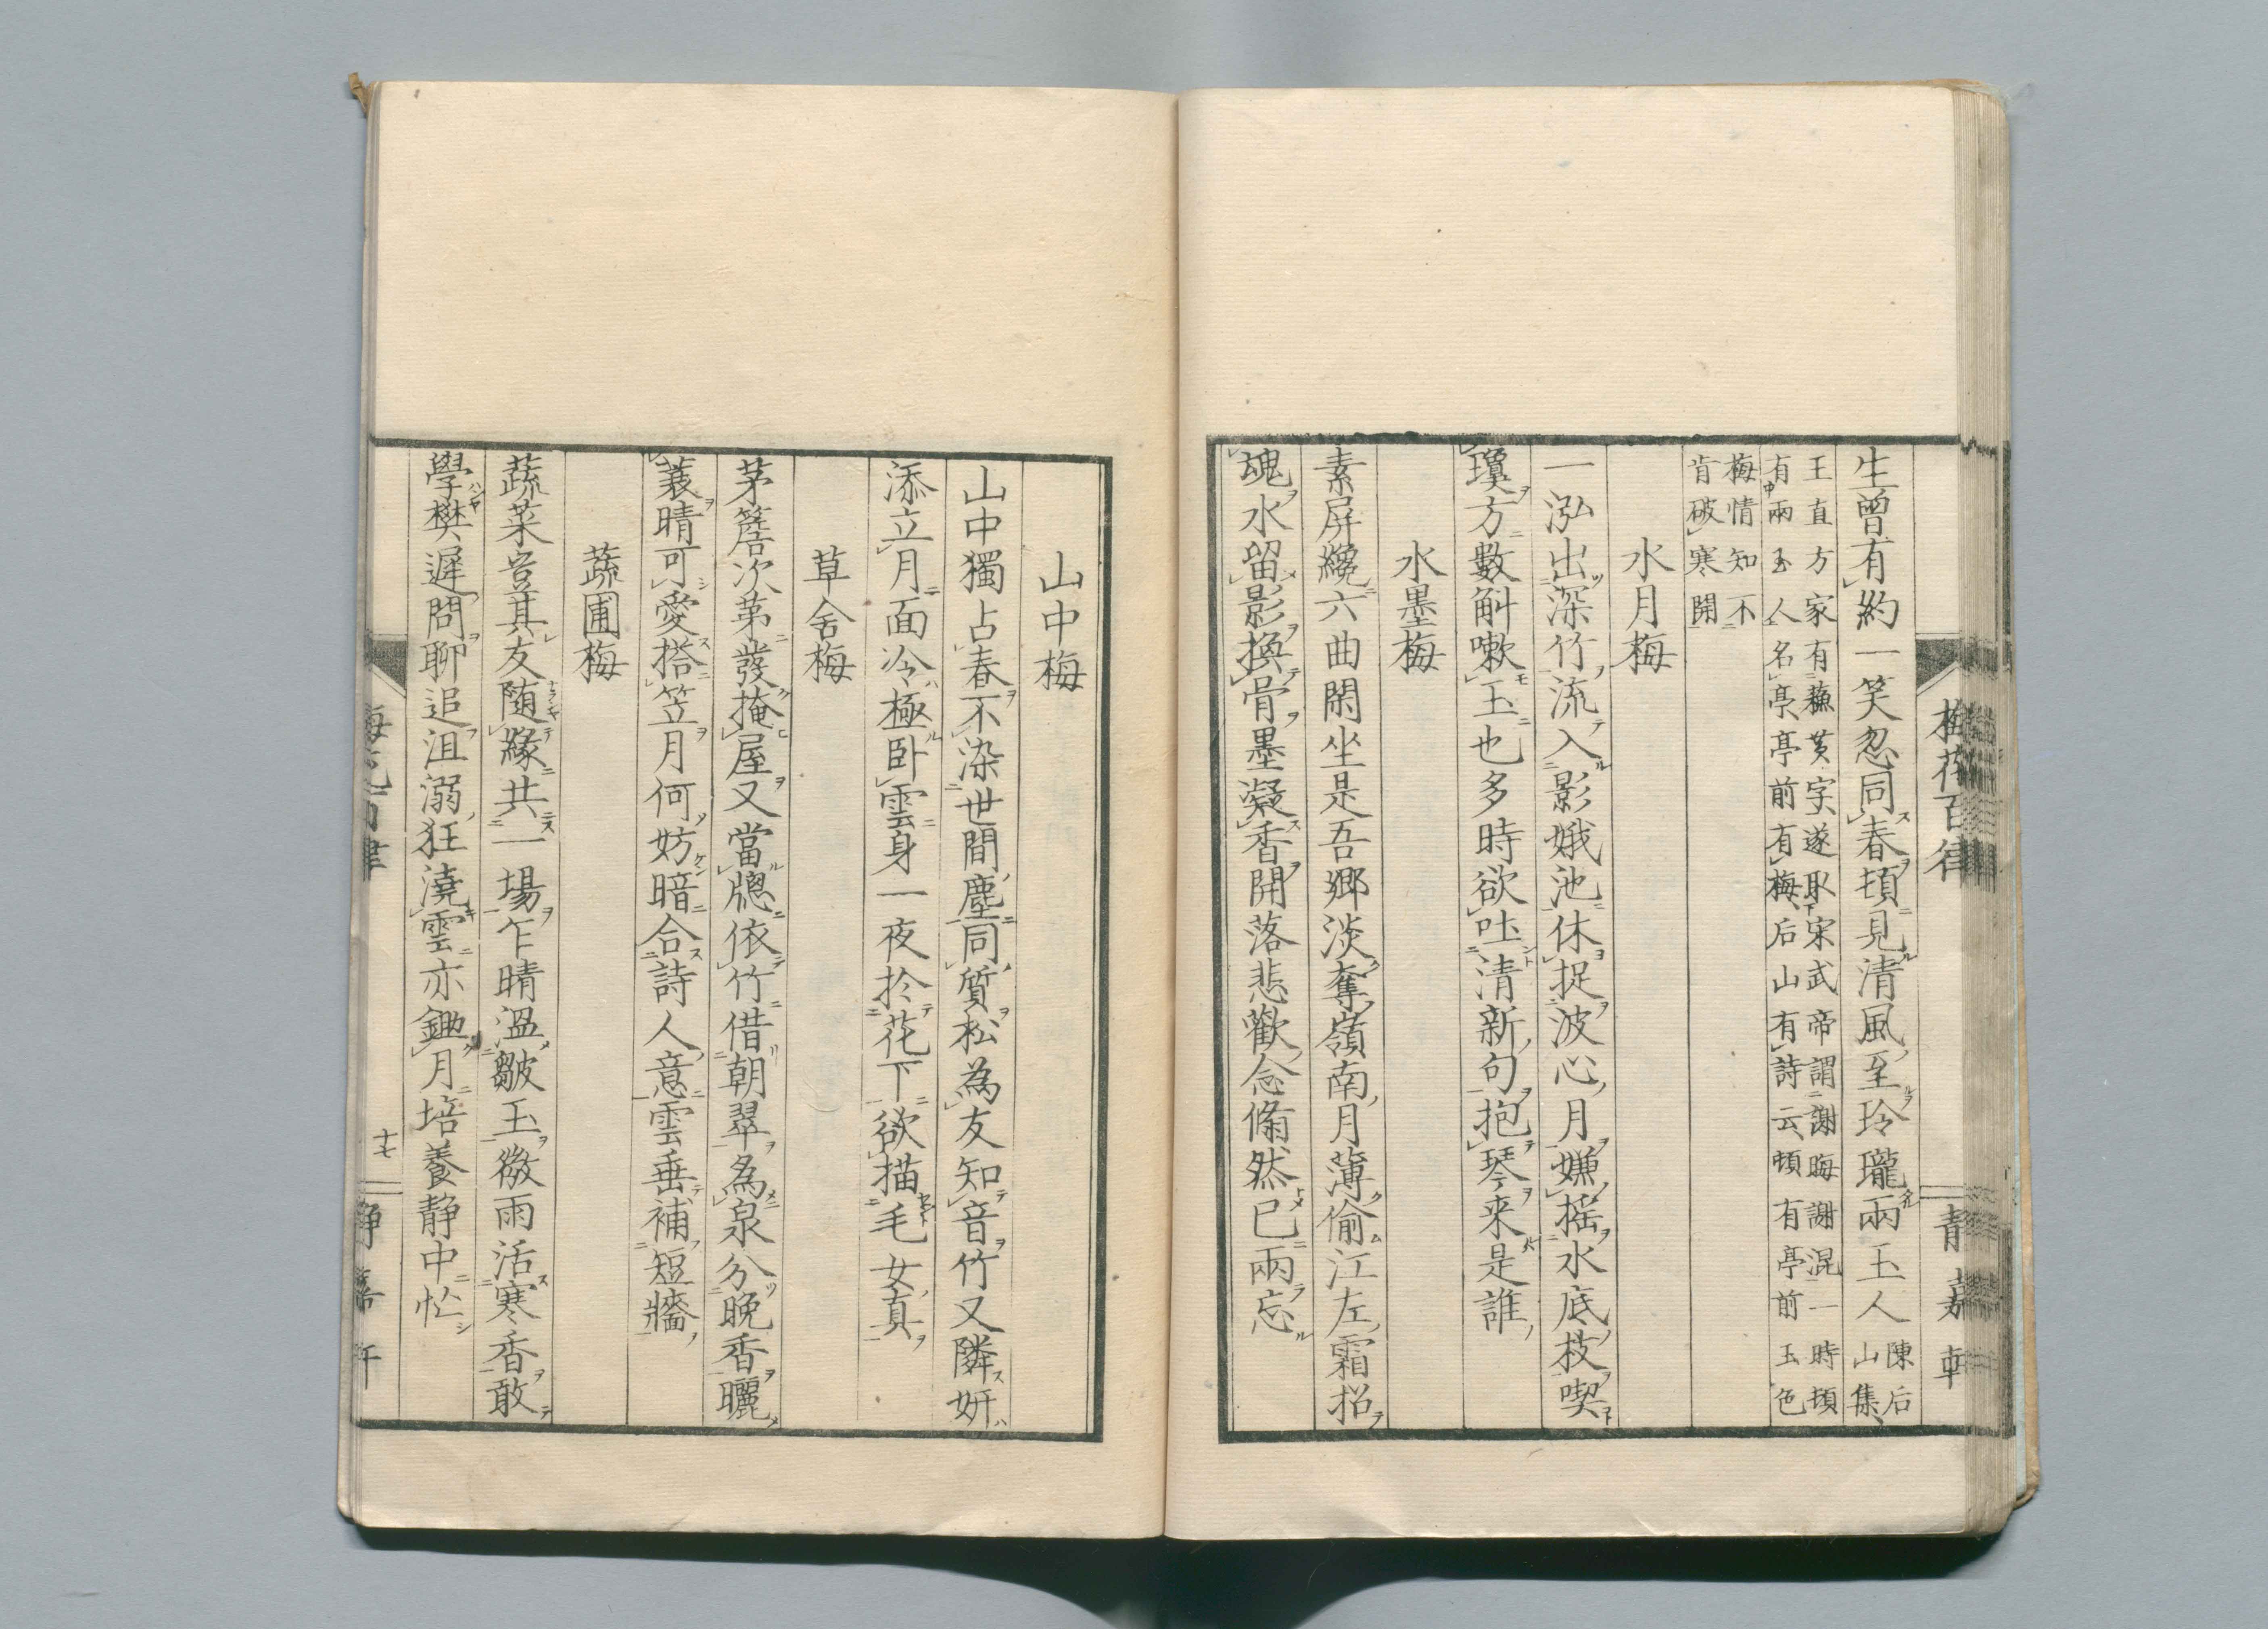 梅花百律
青嘉軒
生曽有約一笑忽同春頓見清風至玲瓏兩玉人陳后山集
王直方家有蘓黄字遂取宋武帝謂謝晦謝混一時頓
有兩玉人名亭亭前有梅后山有詩云頓有亭前玉色
梅情知不
肯破寒開
水月梅
一泓出深竹流入影娥池休捉波心月嫌揺水底枝喫
瓊方數斛嗽玉也多時欲吐清新句抱琴来是誰
水墨梅
素屏纔六曲閑坐是吾郷淡奪嶺南月薄偷江左霜招
魂水留影換骨墨凝香開落悲歡念翛然已兩忘
山中梅
山中獨占春不染世間塵同質松為友知音竹又隣妍
添立月面冷極卧雲身一夜扵花下欲描毛女真
草舍梅
茅簷次第發掩屋又當牕依竹借朝翠為泉分晩香曬
蓑晴可愛搭笠月何妨暗合詩人意雲垂補短牆
蔬圃梅
蔬菜豈其友随縁共一場乍晴温皺玉微雨活寒香敢
學樊遲問聊追沮溺狂澆雲亦鋤月培養静中忙
十七